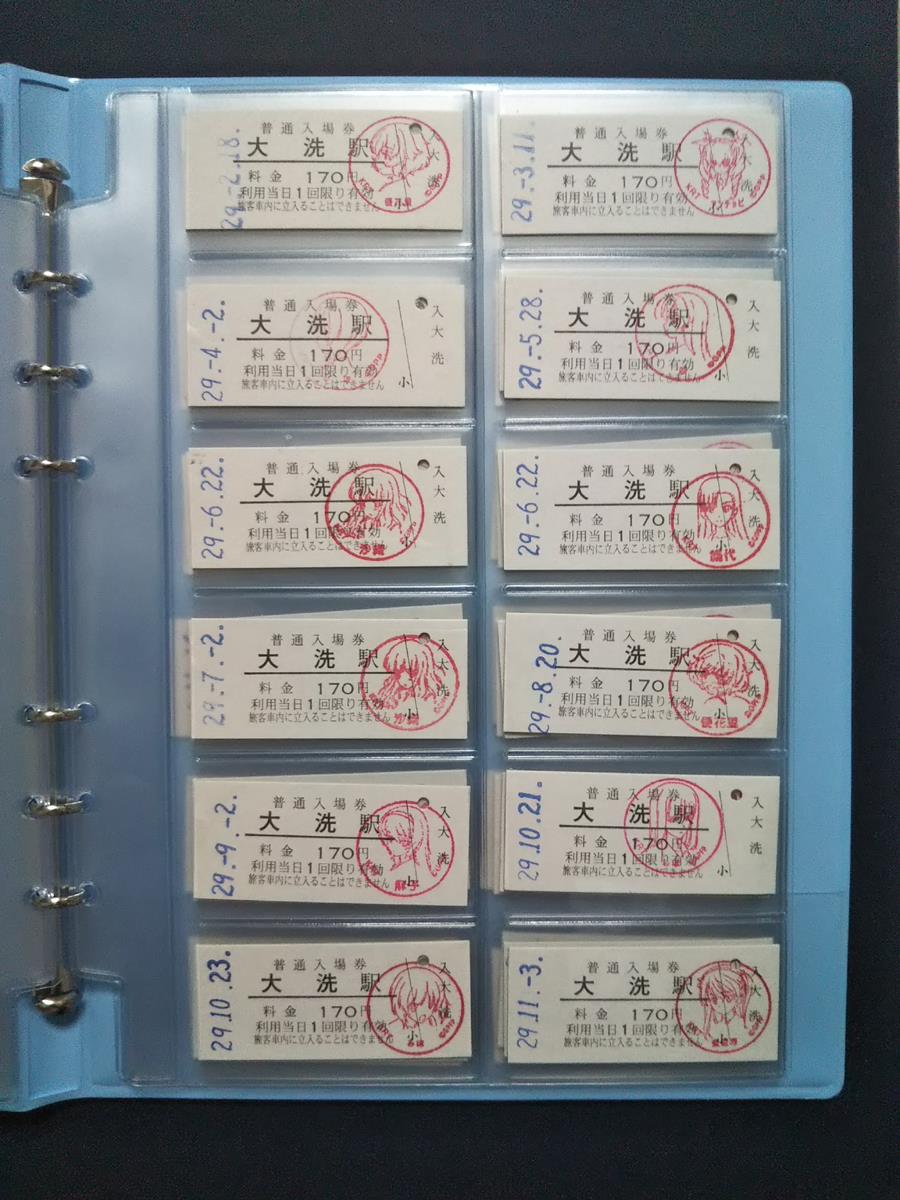 29.-2.18.
普通入場券
大洗駅
料金 170円
利用当日1回限り有効
旅客車内に立入ることはできません
大
洗
小
29.-3.11.
普通入場券
大洗駅
料金 170円
利用当日1回限り有効
旅客車内に立入ることはできません
大
洗
小
KRT
アンチョビ
©GPP
29.-4.-2.
普通入場券
大洗駅
料金 170円
利用当日1回限り有効
旅客車内に立入ることはできません
入
大
洗
小
29.-5.28.
普通入場券
大洗駅
料金 170円
利用当日1回限り有効
旅客車内に立入ることはできません
入
大
洗
小
29.-6.22.
普通入場券
大洗駅
料金 170円
利用当日1回限り有効
旅客車内に立入ることはできません
入
大
洗
小
沙織
29.-6.22.
普通入場券
大洗駅
料金 170円
利用当日1回限り有効
旅客車内に立入ることはできません
入
大
洗
小
29.-7.-2.
普通入場券
大洗駅
料金 170円
利用当日1回限り有効
旅客車内に立入ることはできません
入
大
洗
小
29.-8.20.
普通入場券
大洗駅
料金 170円
利用当日1回限り有効
旅客車内に立入ることはできません
入
大
洗
小
優花里
29.-9.-2.
普通入場券
大洗駅
料金 170円
利用当日1回限り有効
旅客車内に立入ることはできません
入
大
洗
小
麻子
29.10.21.
普通入場券
大洗駅
料金 170円
利用当日1回限り有効
旅客車内に立入ることはできません
入
大
洗
小
29.10.23.
普通入場券
大洗駅
料金 170円
利用当日1回限り有効
旅客車内に立入ることはできません
入
大
洗
小
みほ
29.11.-3.
普通入場券
大洗駅
料金 170円
利用当日1回限り有効
旅客車内に立入ることはできません
入
大
洗
小